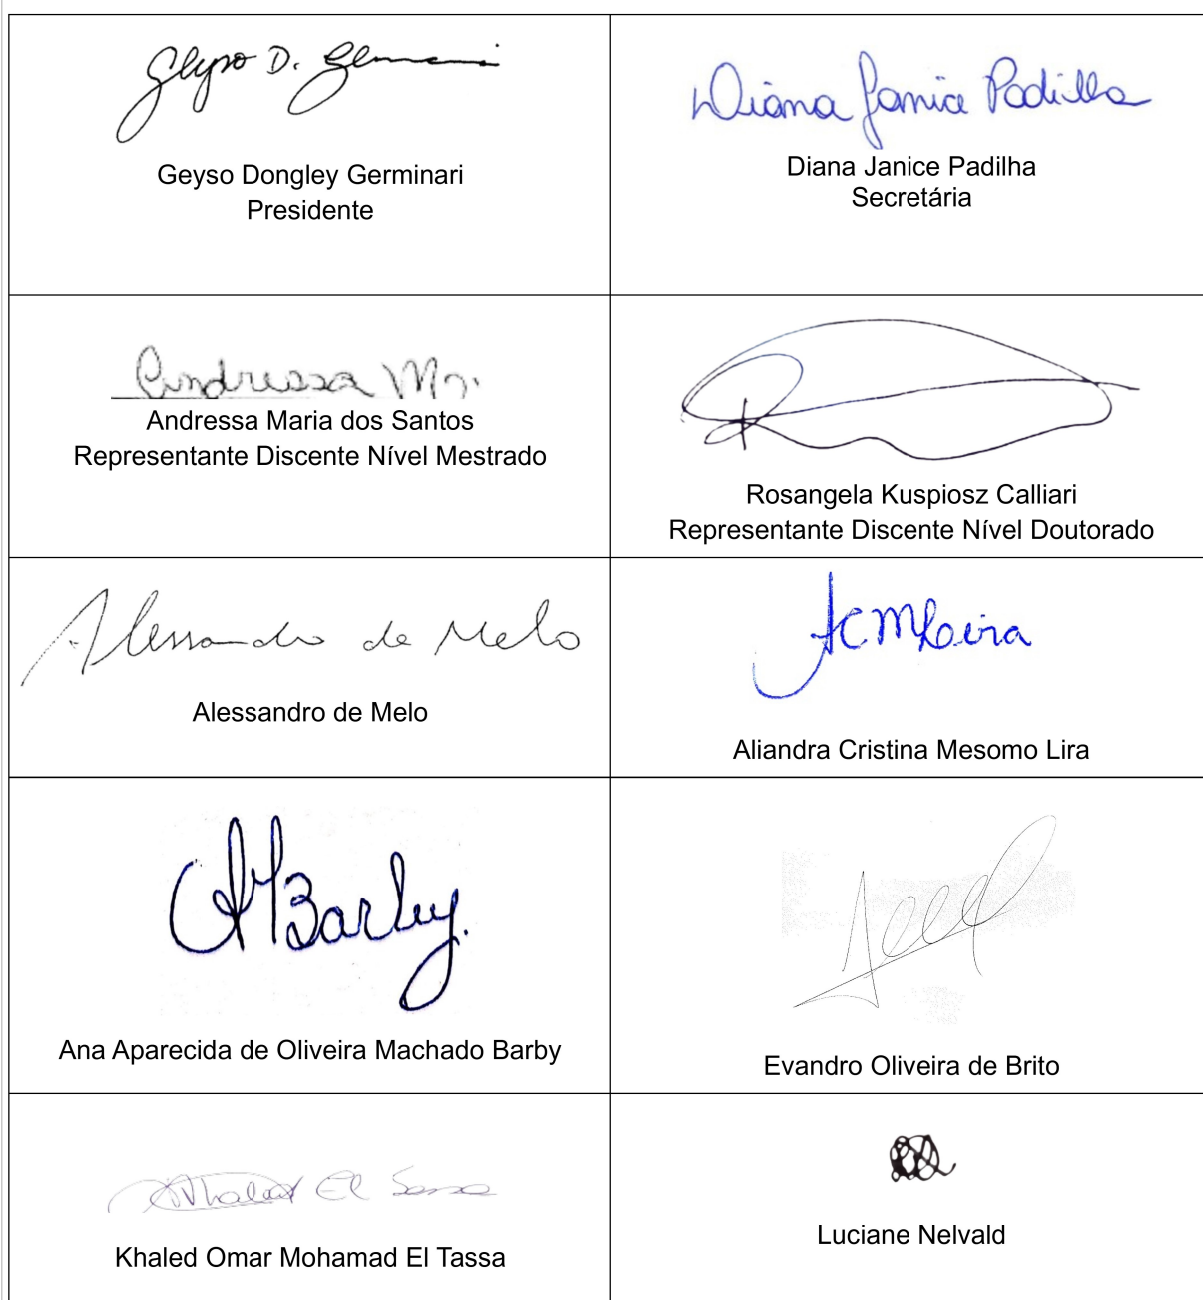 Geyso D. Germinari
Geyso Dongley Germinari
Presidente
Diana Janice Padilha
Diana Janice Padilha
Secretária
Andressa M
Andressa Maria dos Santos
Representante Discente Nível Mestrado
Rosangela Kuspiosz Calliari
Representante Discente Nível Doutorado
Alessandro de Melo
Alessandro de Melo
ACMLira
Aliandra Cristina Mesomo Lira
Barby
Ana Aparecida de Oliveira Machado Barby
Evandro Oliveira de Brito
Khaled El
Khaled Omar Mohamad El Tassa
Luciane Nelvald